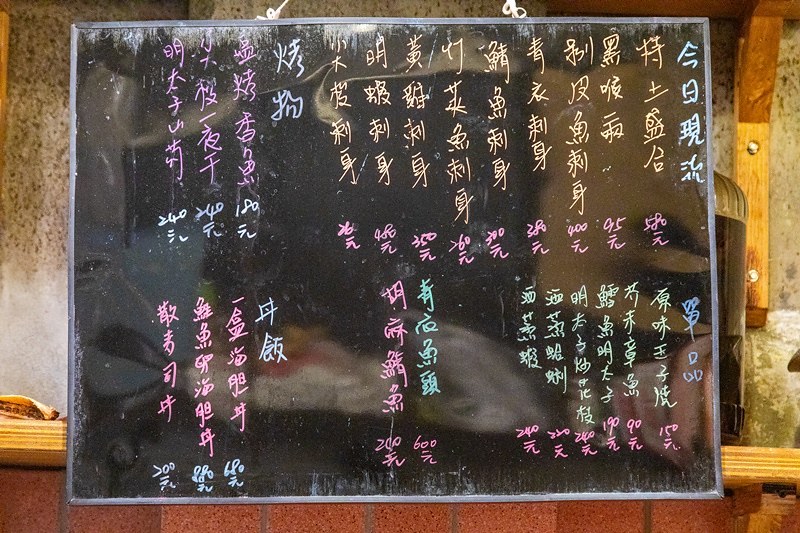 今日現流
特土盛合 580元
黑喉兩 95元
剝皮魚刺身 400元
青衣刺身 380元
鯖魚刺身 300元
竹莢魚刺身 260元
黃雞刺身 350元
明蝦刺身 480元
刺身
烤物
塩烤香魚 180元
一夜干 240元
明太子山药 240元
單品
原味玉子燒 150元
芥末章魚 90元
鱈魚明太子 190元
明太子炒花枝 240元
酒蒸蛤蜊 220元
酒蒸蝦 240元
青衣魚頭 600元
胡麻鯖魚
丼飯
一盒海胆丼 680元
鮭魚卵海胆丼 880元
散寿司丼